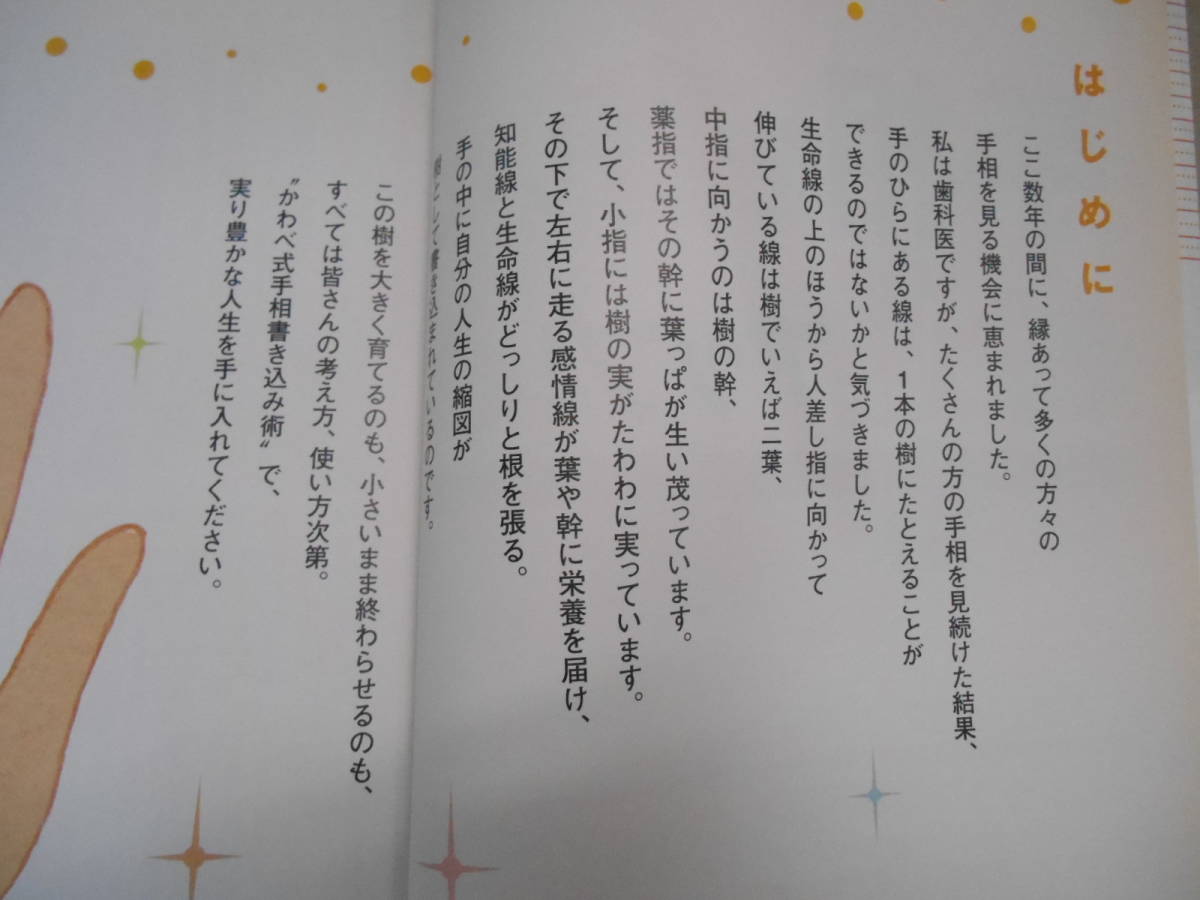 はじめに
ここ数年の間に、縁あって多くの方々の
手相を見る機会に恵まれました。
私は歯科医ですが、たくさんの方の手相を見続けた結果、
手のひらにある線は、1本の樹にたとえることが
できるのではないかと気づきました。
生命線の上のほうから人差し指に向かって
伸びている線は樹でいえば二葉、
中指に向かうのは樹の幹、
薬指ではその幹に葉っぱが生い茂っています。
そして、小指には樹の実がたわわに実っています。
その下で左右に走る感情線が葉や幹に栄養を届け、
知能線と生命線がどっしりと根を張る。
手の中に自分の人生の縮図が
として書き込まれているのです。
この樹を大きく育てるのも、小さいまま終わらせるのも、
すべては皆さんの考え方、使い方次第。
〝かわべ式手相書き込み術〟で、
実り豊かな人生を手に入れてください。